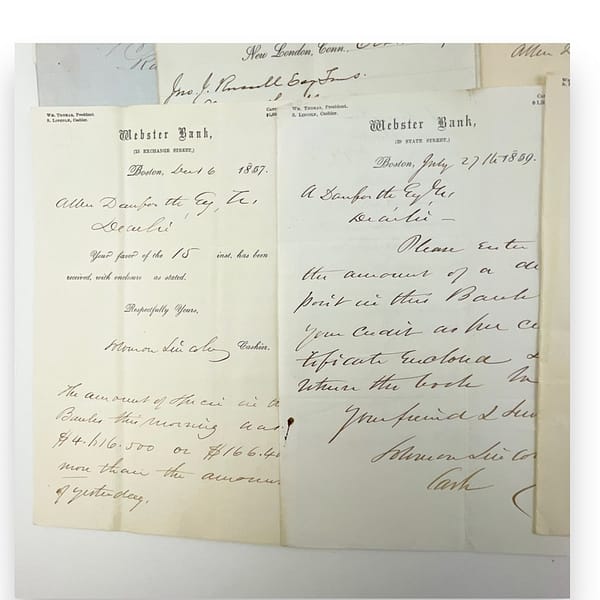 New London, Conn.,
Jno. J. Russell Esq Trs.
Allen D
Wm. Thomas, President.
S. Lincoln, Cashier.
Webster Bank,
(23 EXCHANGE STREET,)
Boston, 6 1857.
Allen Danforth Esq, Trs
Dear Sir
Your favor of the 15 inst. has been
received, with enclosure as stated.
Respectfully Yours,
Solomon Lincoln Cashier.
The amount of Specie in th
Banks this morning was
$4.616.500 or $166.4
more than the amoun
of yesterday.
Wm. Thomas, President.
S. Lincoln, Cashier.
Webster Bank,
(39 STATE STREET,)
Boston, July 27th 1859.
A Danforth Esq Trs
Dear Sir —
Please enter
the amount of a de
posit in this Bank
your credit as per ce
tificate enclosed &
return the book
Your friend & Serv
Solomon Lincol
Cash